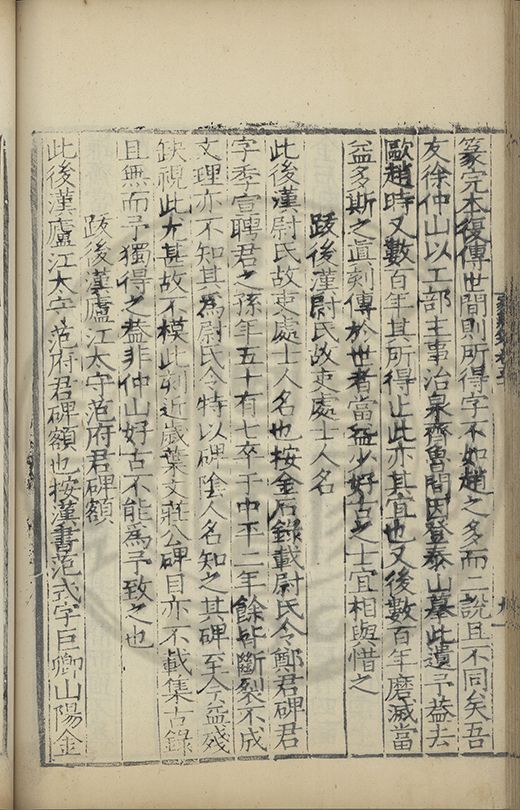 篆完本復傳世間則所得字不如趙之多而二說且不同矣吾
友徐仲山以工部主事治泉齊魯間因登泰山摹此遺予蓋去
歐趙時又數百年其所得止此亦其宜也又後數百年磨滅當
益多斯之眞刻傳於世者當益少好古之士宜相與惜之
跋後漢尉氏故吏處士人名
此後漢尉氏故吏處士人名也按金石錄載尉氏令鄭君碑君
字季宣聘君之孫年五十有七卒于中平二年餘此斷裂不成
文理亦不知其爲尉氏令特以碑陰人名知之其碑至今益殘
缺視此尤甚故不模此刻近歲葉文莊公碑目亦不載集古錄
且無而予獨得之葢非仲山好古不能爲予致之也
跋後漢廬江太守范府君碑額
此後漢廬江太守范府君碑額也按漢書范式字巨卿山陽金